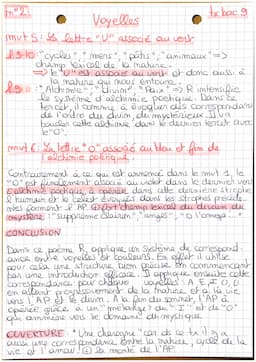 n°2
Voyelles
tx bac 9
mvt 5 : La lettre "U" associé au vert
l.9-10 : "cycles", "mers", "pâtis", "animaux" =>
champ lexical de la nature.
=> le "U" est associé au vert et donc aussi à
la nature qui nous entoure.
l.11 : "Alchimie", "divin", "Paix" => R intensifie
le système d'alchimie poétique. Dans ce
tercet, il comme à évoquer des correspondances
de l'ordre du divin, du mystérieux. Il va
boucler cette alchimie dans le dernier tercet avec
le "O".
mvt 6 : La lettre "O" associé au bleu et fin de
l'alchimie poétique.
Contrairement à ce qui est annoncé dans le mvt 1, le
"O" est finalement associé au violet dans le dernier vers
L'alchimie poétique, a opérée dans cette dernière strophe
l'humain et le céleste évoqués dans les strophes précédentes
forment l'AP
mystère : "suprême clairon", "anges", "O l'oméga..."
CONCLUSION
Dans ce poème R, applique un système de correspondance
entre voyelles et couleurs. En effet il utilise
pour cela une structure bien précise en commençant
par une introduction efficace. Il applique ensuite cette
correspondance pour chaque voyelles : A E I O U
en allant progressivement de la nature et à la vie
vers l'AP et le divin. A la fin du sonnet, l'AP a
opérée grâce à un "mélange" du "I" et du "O"
qui emmène vers le domaine du mystique.
OUVERTURE
"Une charogne" car de ce tx il y a
aussi une correspondance entre la nature, cycle de la
vie et l'amour
la morte de l'AP